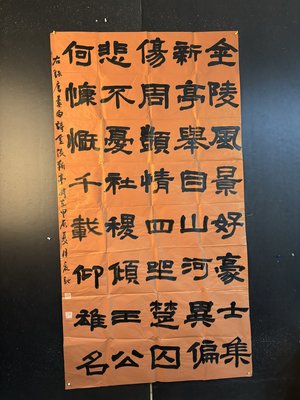 金陵風景好豪士集
新亭舉目山河異偏
傷周顗情四坐楚囚
悲不憂社稷傾王公
何慷慨千載仰雄名
右錄唐李白詩金陵新亭